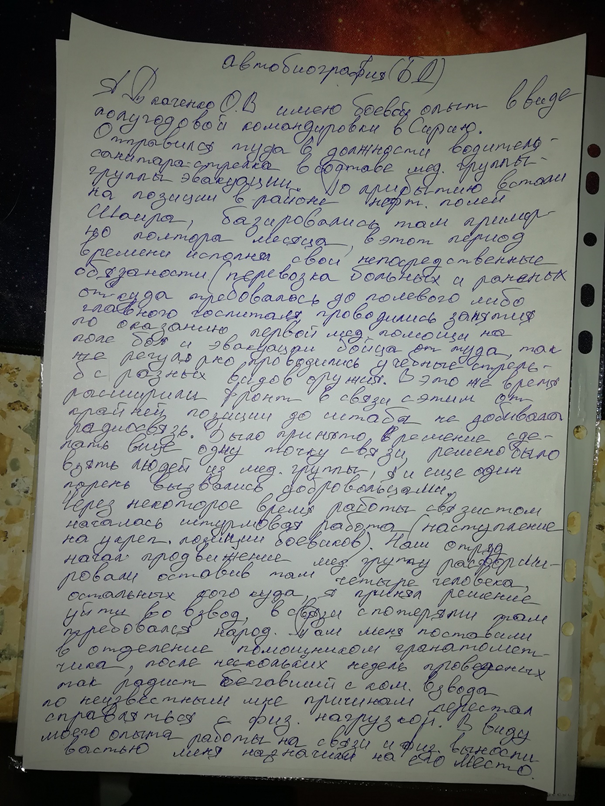 автобиография (Б Д)
Я Ткаченко О.В имею боевой опыт в виде
полугодовой командировки в Сирию.
Отправился туда в должности водитель-
санитара-стрелка в составе мед. группы-
группы эвакуации. По прибытию встали
на позиции в районе нефт. полей
Шаира, базировались там пример-
но полтора месяца, в этот период
времени исполнял свои непосредственные
обязаности (перевозка больных и раненых
откуда требовалось до полевого либо
главного госпиталя проводились занятия
по оказанию первой мед. помощи на
поле боя и эвакуации бойца от туда, так
же регулярно проводились учебные стрель-
бы с разных видов оружия. В это же время
расширили фронт в связи с этим от
крайней позиции до штаба не добивала
радиосвязь. Было принято решение сде-
лать еще одну точку связи, решено было
взять людей из мед. группы, я и еще один
парень вызвались добровольцами.
Через некоторое время работы связистом
началась штурмовая работа (наступление
на укреп. позиции боевиков). Наш отряд
начал продвижение мед группу расформи-
ровали оставив там четыре человека,
остальных кого куда, я принял решение
уйти во взвод, в связи с потерями там
требовался народ. Там меня поставили
в отделение помощником гранатомет-
чика, после нескольких недель проведеных
так радист бегавший с ком. взвода
по неизвестным мне причинам перестал
справляться с физ. нагрузкой. В виду
моего опыта работы на связи и физ. выносли-
востью меня назначили на его место.